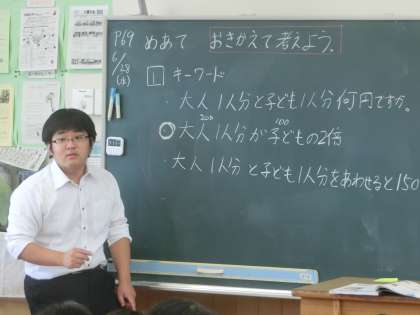 P69
6/28
(水)
めあて おきかえて考えよう。
1 キーワード
・大人1人分と子ども1人分何円ですか。
200 100
◎大人1人分が子どもの2倍
大人1人分と子ども1人分をあわせると150